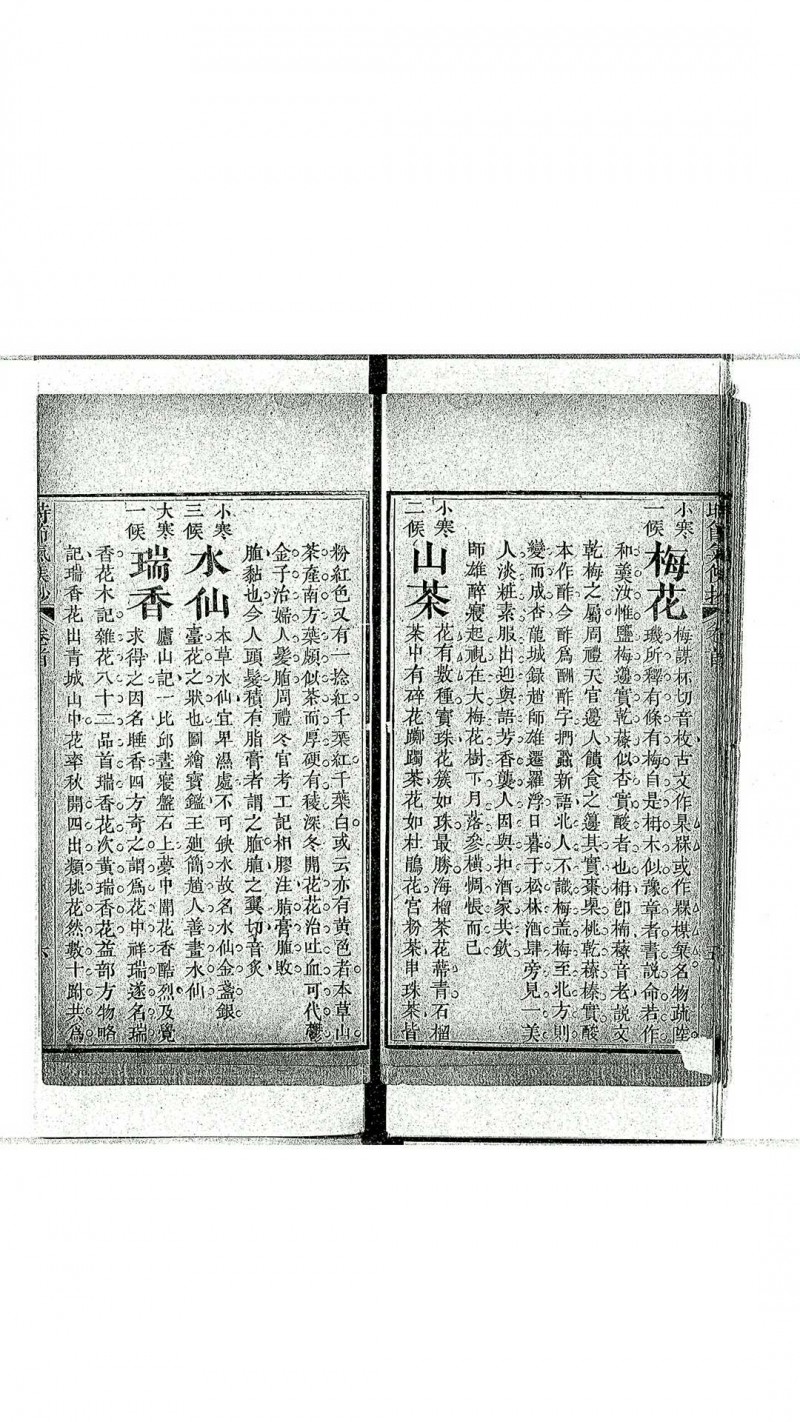 小寒
一候
梅花
梅謀杯切音枚古文作杲槑或作楳棋㮋名物疏陸
璣所釋有條有梅自是枏木似豫章者書說命若作
和羹汝惟鹽梅籩實乾䕩似杏實酸者也枏卽楠䕩音老說文
乾梅之屬周禮天官籩人饋食之籩其實棗栗桃乾䕩榛實酸
本作酢今酢爲酬酢字捫蝨新語北人不識梅盖梅至北方則
變而成杏龍城錄趙師雄遷羅浮日暮于松林酒肆旁見一美
人淡粧素服出迎與語芳香襲人因與扣酒家共飲
師雄醉寢起視在大梅花樹下月落參橫惆悵而已
小寒
二候
山茶
花有數種寶珠花簇如珠最勝海榴茶花蔕青石榴
茶中有碎花躑躅茶花如杜鵑花宮粉茶串珠茶皆
粉紅色又有一捻紅千葉紅千葉白或云亦有黃色若本草山
茶產南方葉頗似茶而厚硬有稜深冬開花花治吐血可代鬱
金子治婦人髮䐈周禮冬官考工記相膠注脂膏䐈敗
䐈黏也今人頭髮積有脂膏者謂之䐈䐈之翼切音炙
小寒
三候
水仙
本草水仙宜卑濕處不可鈌水故名水仙金盞銀
臺花之狀也圖繪寶鑑王廸簡趙人善畫水仙
大寒
一候
瑞香
廬山記一比邱晝寢盤石上夢中聞花香酷烈及覺
求得之因名睡香四方奇之謂爲花中祥瑞遂名瑞
香花木記雜花八十二品首瑞香花次黃瑞香花益部方物略
記瑞香花出青城山中花率秋開四出類桃花然數十跗共爲
時節氣候抄
卷首
六